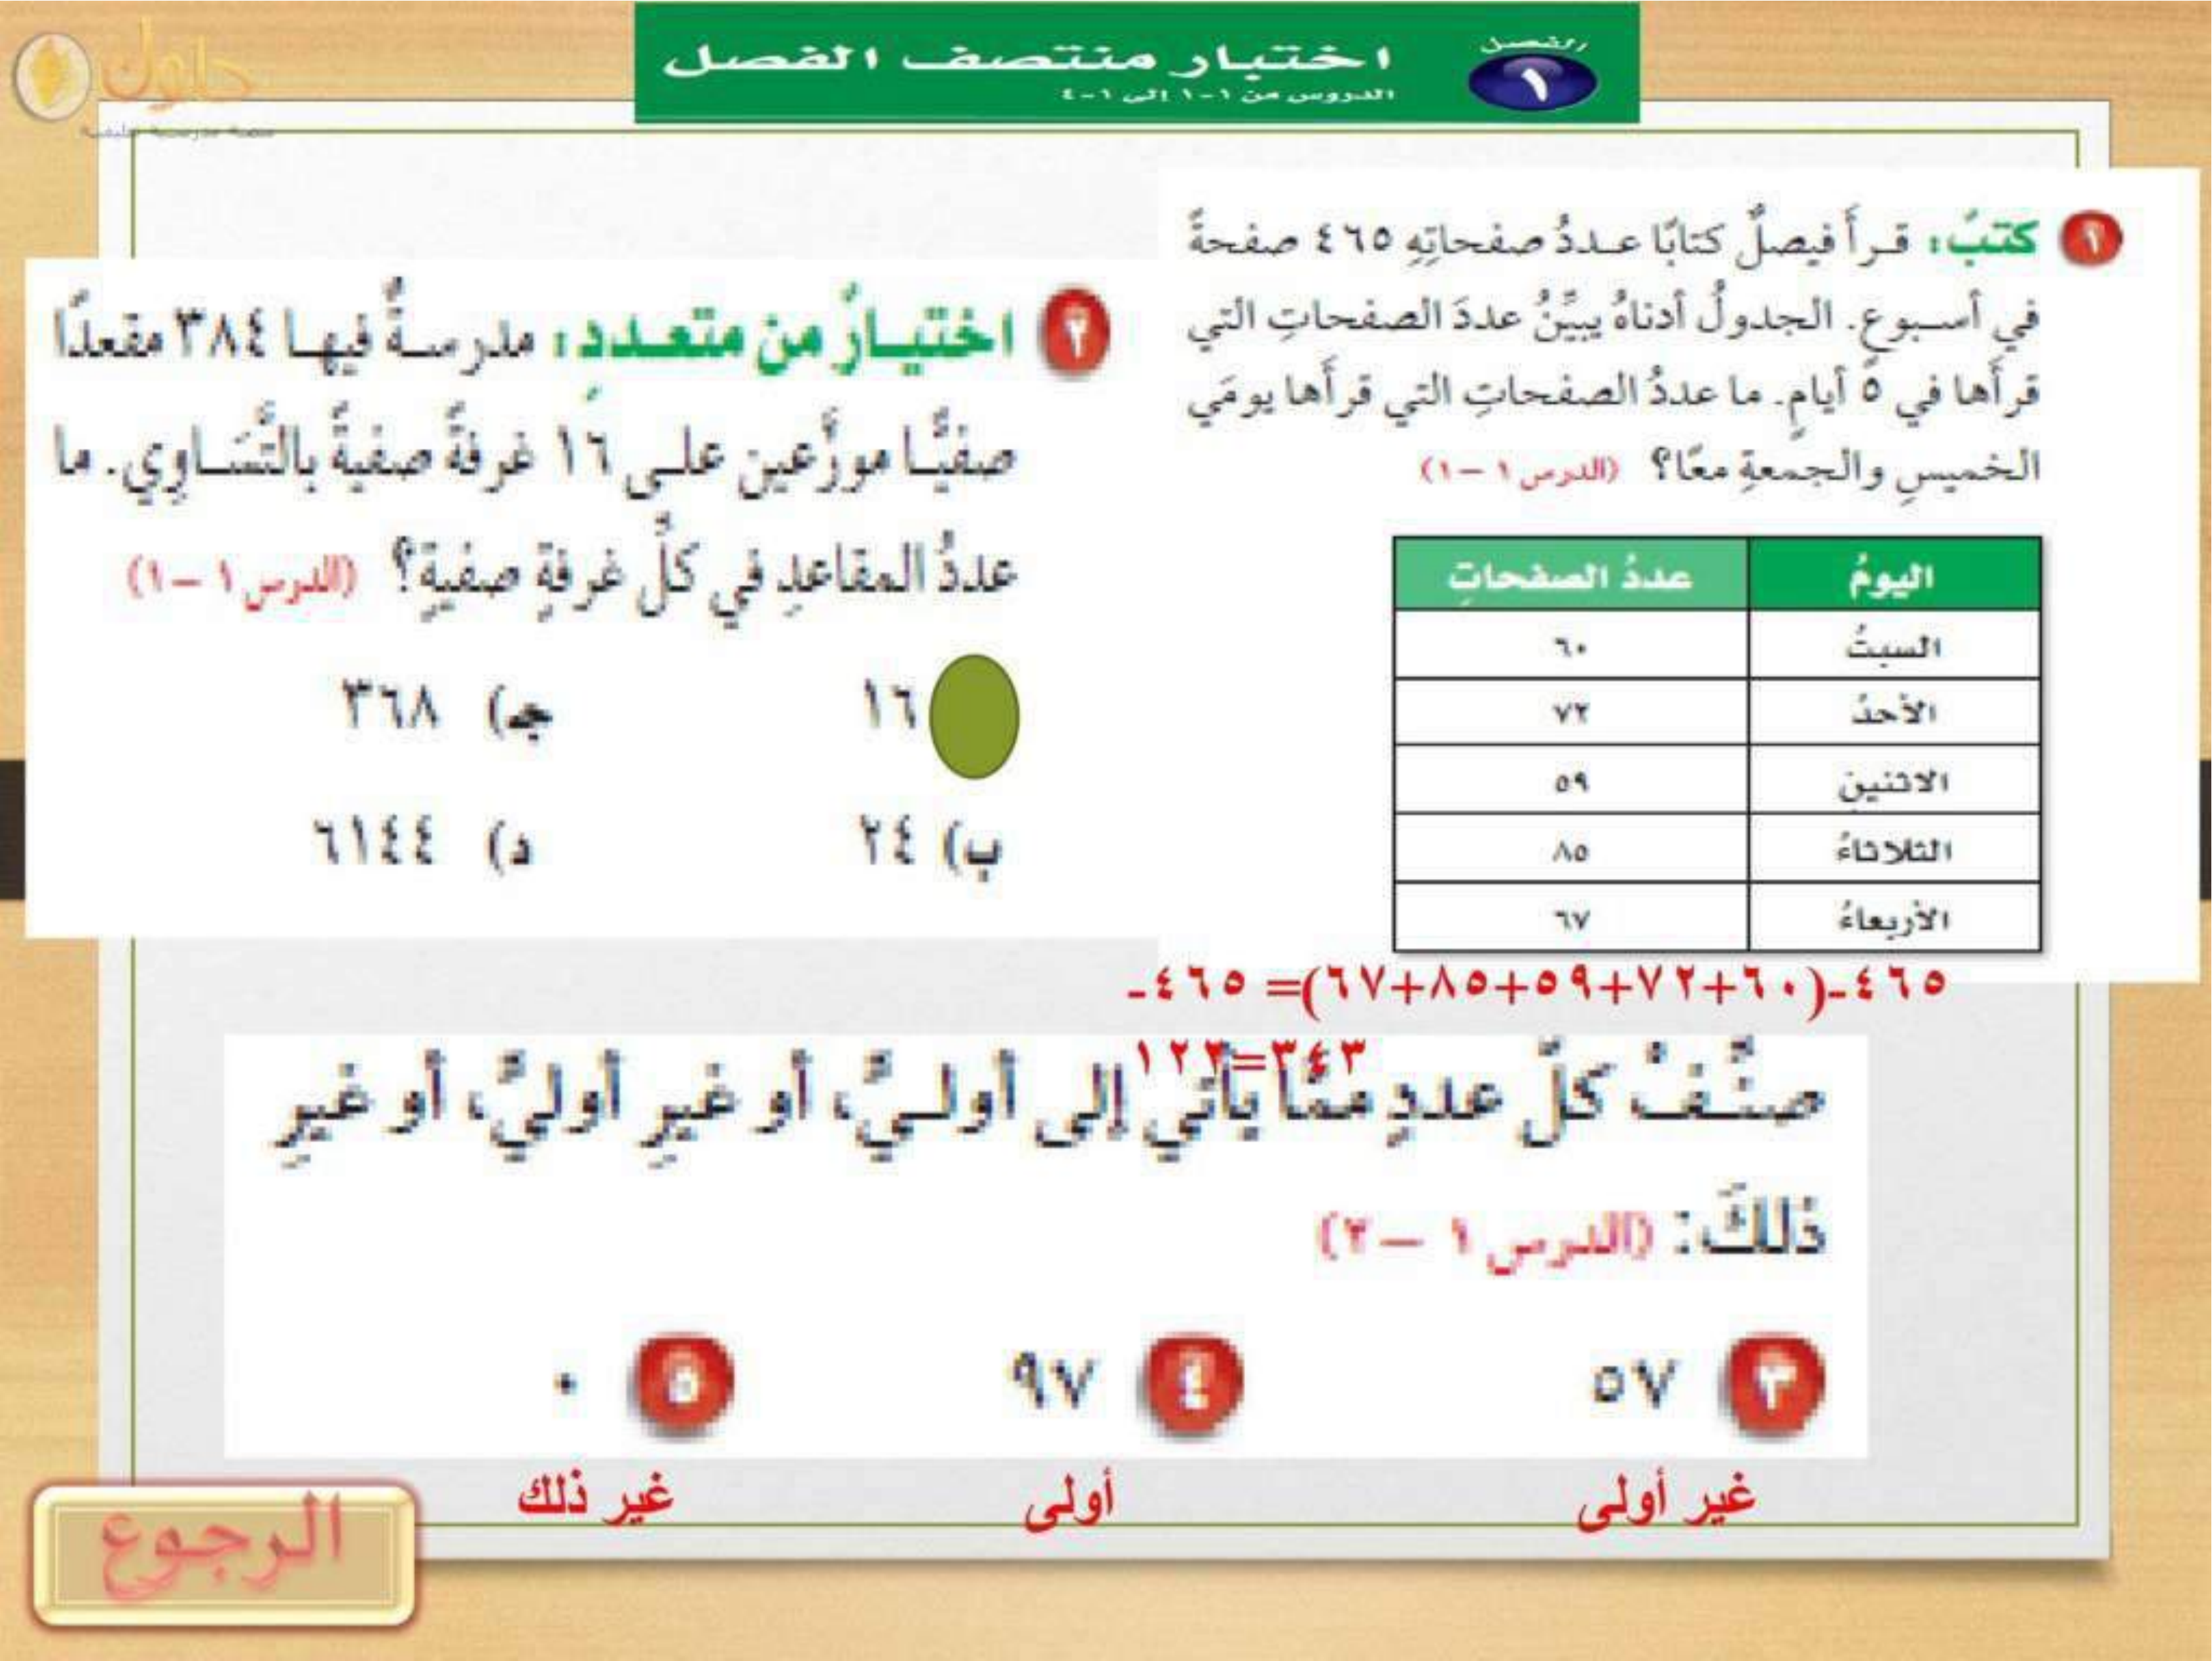 حلول
منصة مدرستي التعليمية
الفصل
١
اختبار منتصف الفصل
الدروس من ١-١ إلى ١-٤
١ كتبٌ: قرأَ فيصلٌ كتابًا عددُ صفحاتِهِ ٤٦٥ صفحةً
في أسبوعٍ. الجدولُ أدناهُ يبيِّنُ عددَ الصفحاتِ التي
قرأَها في ٥ أيامٍ. ما عددُ الصفحاتِ التي قرأَها يومَي
الخميسِ والجمعةِ معًا؟ (الدرس ١ – ١)
اليومُ عددُ الصفحاتِ
السبتُ ٦٠
الأحدُ ٧٢
الاثنينِ ٥٩
الثلاثاءُ ٨٥
الأربعاءُ ٦٧
٤٦٥-(٦٠+٧٢+٥٩+٨٥+٦٧)= ٤٦٥-
٣٤٣=١٢٢
٢ اختيارٌ من متعددٍ: مدرسةٌ فيها ٣٨٤ مقعدًا
صفيًّا موزَّعين على ١٦ غرفةً صفيةً بالتَّسَاوِي. ما
عددُ المقاعدِ في كلِّ غرفةٍ صفيةٍ؟ (الدرس ١ – ١)
١٦ جـ) ٣٦٨
ب) ٢٤ د) ٦١٤٤
صنِّفْ كلَّ عددٍ ممَّا يأتي إلى أوليٍّ، أو غيرِ أوليٍّ، أو غيرِ
ذلكَ: (الدرس ١ – ٢)
٣ ٥٧ ٤ ٩٧ ٥ ٠
غير أولى أولى غير ذلك
الرجوع